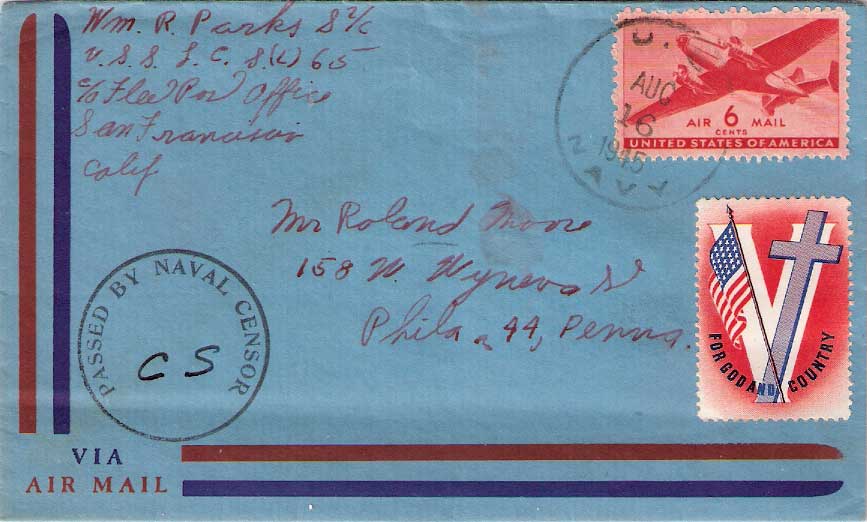 Wm. R. Parks S 2/c
U.S.S. L.C.S.(L) 65
c/o Fleet Post Office
San Francisco
Calif
U.
AUG
16
1945
NAVY
AIR 6 MAIL
CENTS
UNITED STATES OF AMERICA
Mr Roland Moore
158 W. St
Phila. 44, Penna.
FOR GOD AND COUNTRY
PASSED BY NAVAL CENSOR
CS
VIA
AIR MAIL